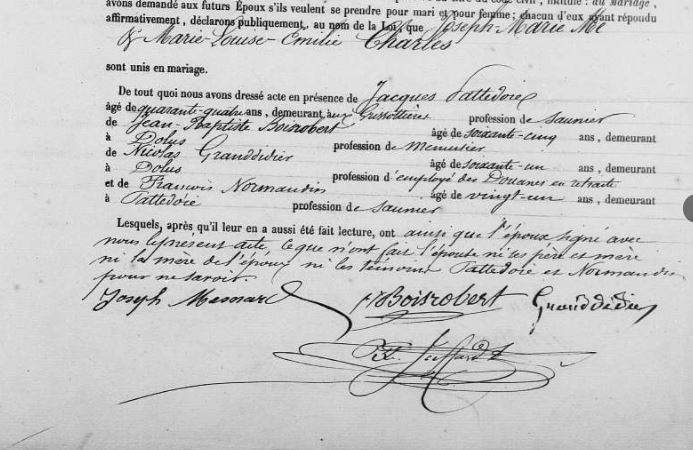 avons demandé aux futurs Époux s'ils veulent se prendre pour mari et pour femme; chacun d'eux ayant répondu
affirmativement, déclarons publiquement, au nom de la Loi, que Joseph Marie Me
& Marie-Louise-Emilie Charles
sont unis en mariage.
De tout quoi nous avons dressé acte en présence de Jacques Tattedoie
âgé de quarante-quatre ans, demeurant aux profession de saunier
de Jean-Baptiste Boisrobert âgé de soixante-cinq ans, demeurant
à Dolus profession de Menuisier
de Nicolas Granddidier âgé de soixante-un ans, demeurant
à Dolus profession d'employé des Douanes en retraite
et de François Normandin âgé de vingt-un ans, demeurant
à profession de saunier
Lesquels, après qu'il leur en a aussi été fait lecture, ont ainsi que l'époux signé avec
nous le présent acte, ce que n'ont fait l'épouse ni ses père et mère
ni la mère de l'époux ni les témoins Tattedoie et Normandin
pour ne savoir.
Joseph Boisrobert Granddidier